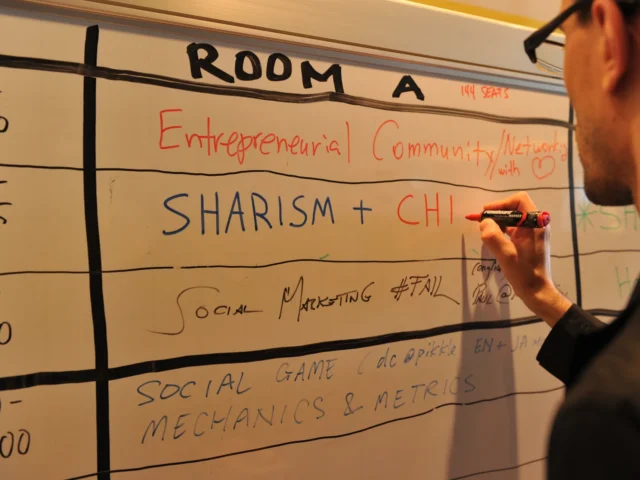 ROOM A
144 SEATS
Entrepreneurial Community/Networking
with ♡
SHARISM + CHI
SOCIAL MARKETING #FAIL
SOCIAL GAME (dc @pikkle EN + JA
MECHANICS & METRICS